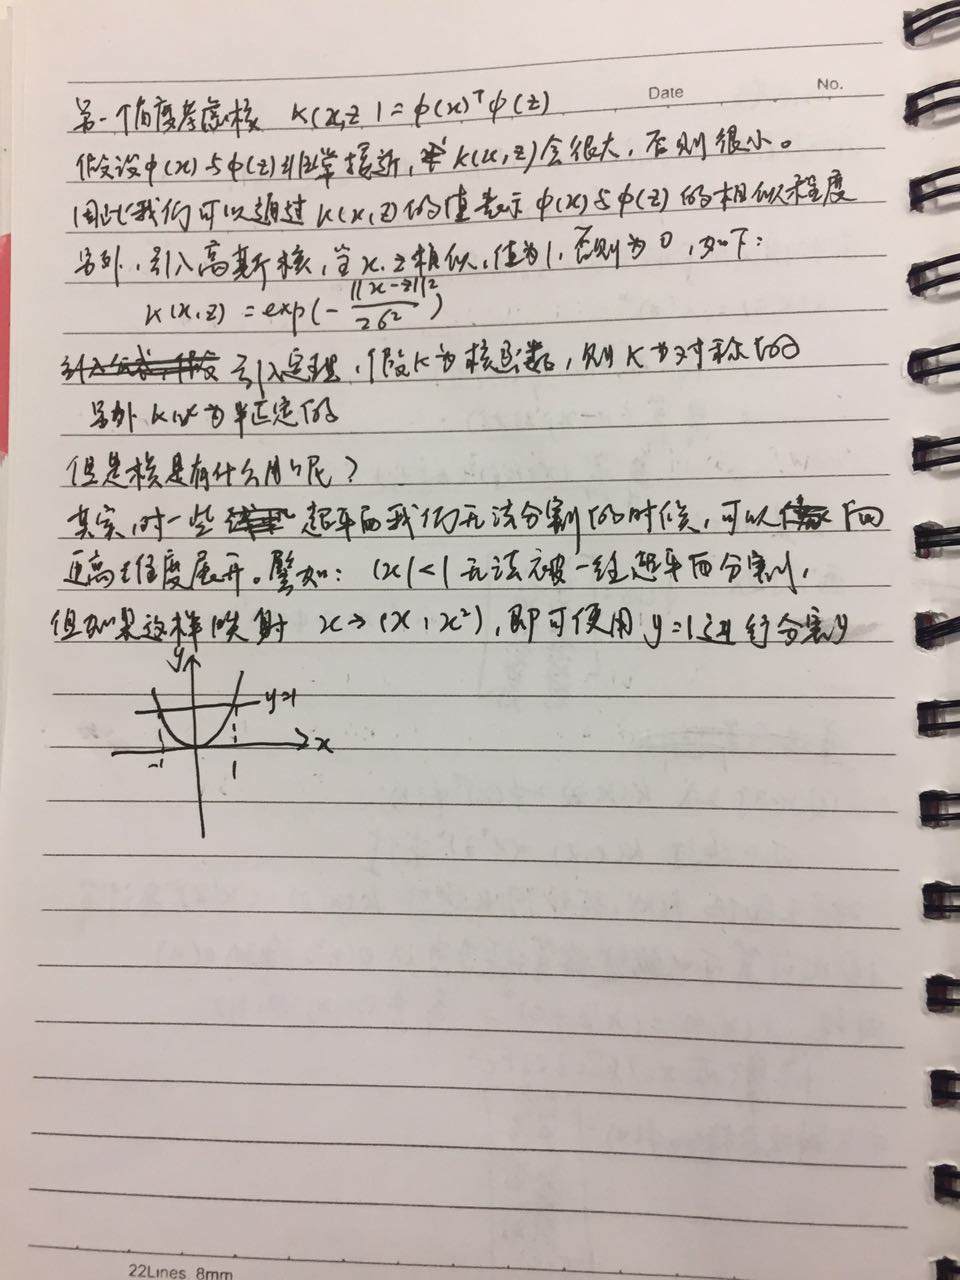 Date No.
另一个角度考虑核 K(x,z)=φ(x)ᵀφ(z)
假设φ(x)与φ(z)非常接近, K(x,z)会很大,否则很小。
因此我们可以通过K(x,z)的值表示φ(x)与φ(z)的相似程度
另外,引入高斯核,当x,z相似,值为1,否则为0,如下:
K(x,z) = exp(-||x-z||²/2σ²)
引入定理,假设K为核函数,则K为对称的
另外K 为半正定的
但是核是有什么用呢?
其实,对一些 超平面我们无法分割的时候,可以 向
更高维度展开。譬如: |x|<1无法被一维超平面分割,
但如果这样映射 x→(x,x²),即可使用y=1进行分割
y
y=1
x
-1 1
22Lines 8mm